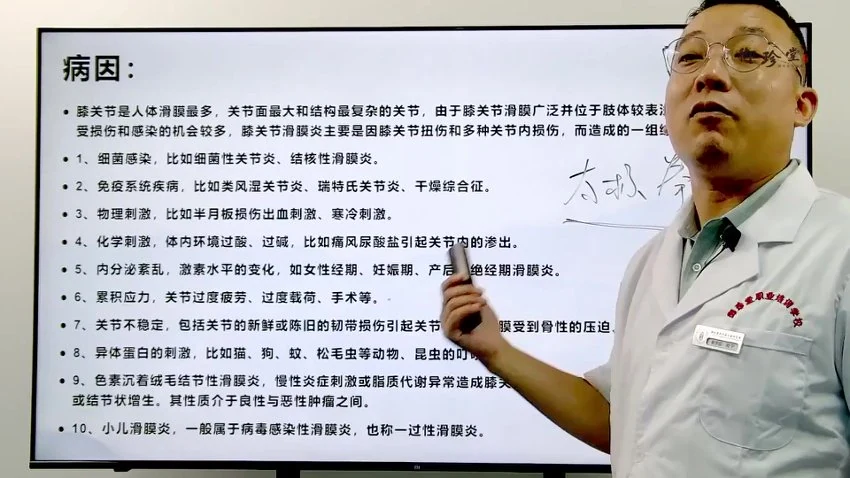 病因：
• 膝关节是人体滑膜最多，关节面最大和结构最复杂的关节，由于膝关节滑膜广泛并位于肢体较表
受损伤和感染的机会较多，膝关节滑膜炎主要是因膝关节扭伤和多种关节内损伤，而造成的一组
• 1、细菌感染，比如细菌性关节炎、结核性滑膜炎。
• 2、免疫系统疾病，比如类风湿关节炎、瑞特氏关节炎、干燥综合征。
• 3、物理刺激，比如半月板损伤出血刺激、寒冷刺激。
• 4、化学刺激，体内环境过酸、过碱，比如痛风尿酸盐引起关节内的渗出。
• 5、内分泌紊乱，激素水平的变化，如女性经期、妊娠期、产后 绝经期滑膜炎。
• 6、累积应力，关节过度疲劳、过度载荷、手术等。
• 7、关节不稳定，包括关节的新鲜或陈旧的韧带损伤引起关节 膜受到骨性的压迫、
• 8、异体蛋白的刺激，比如猫、狗、蚊、松毛虫等动物、昆虫的叮
• 9、色素沉着绒毛结节性滑膜炎，慢性炎症刺激或脂质代谢异常造成膝关
或结节状增生。其性质介于良性与恶性肿瘤之间。
• 10、小儿滑膜炎，一般属于病毒感染性滑膜炎，也称一过性滑膜炎。
珍堂
堂职业培训学校